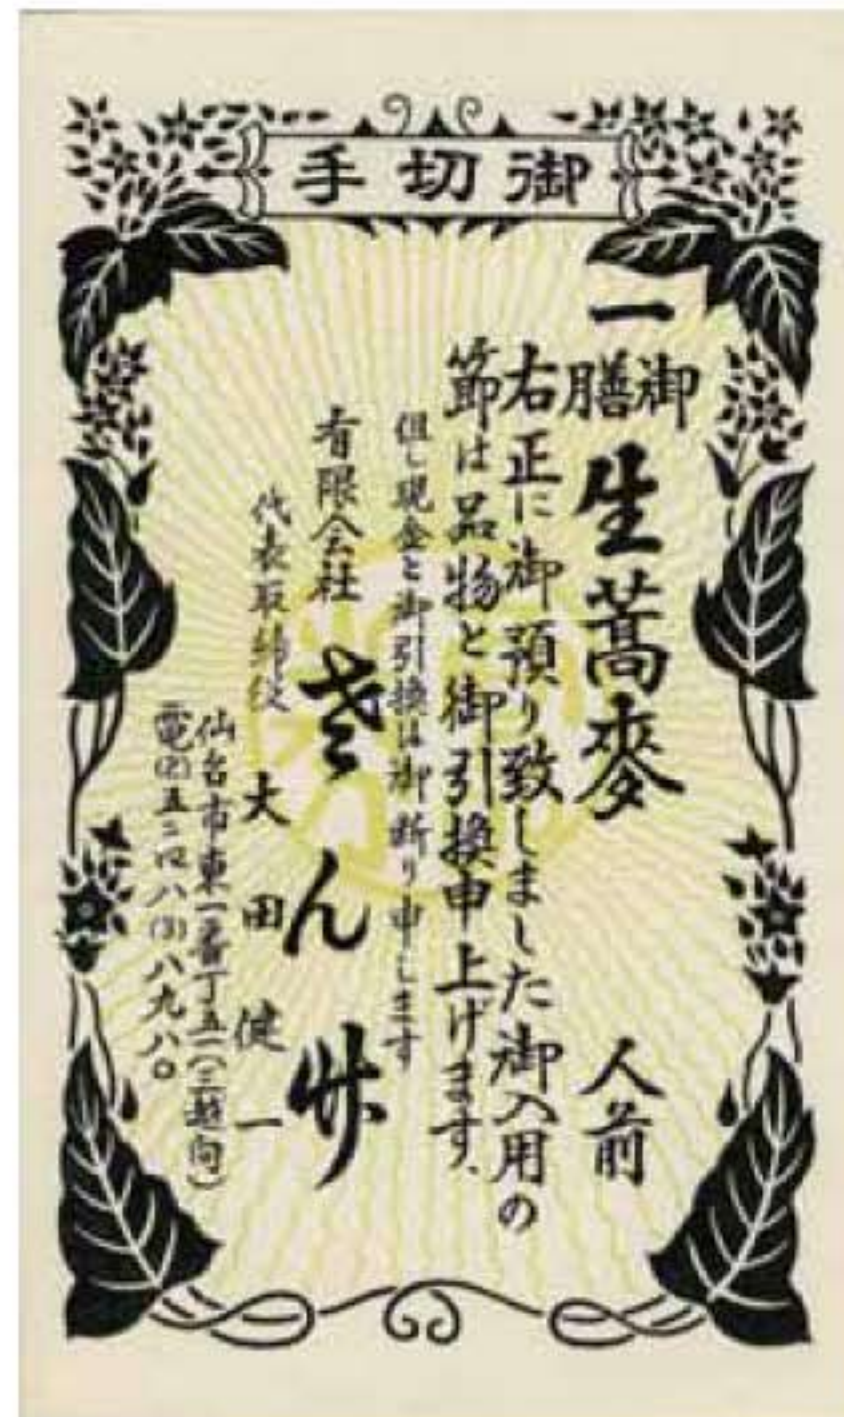 御切手
一 御膳 生蕎麥 人前
右正に御預り致しました御入用の
節は品物と御引換申上げます、
但し現金と御引換は御断り申します
有限会社 きん升
代表取締役 大田健一
仙台市東一番丁五一(三越向)
電(2)五二四八(3)八九八〇